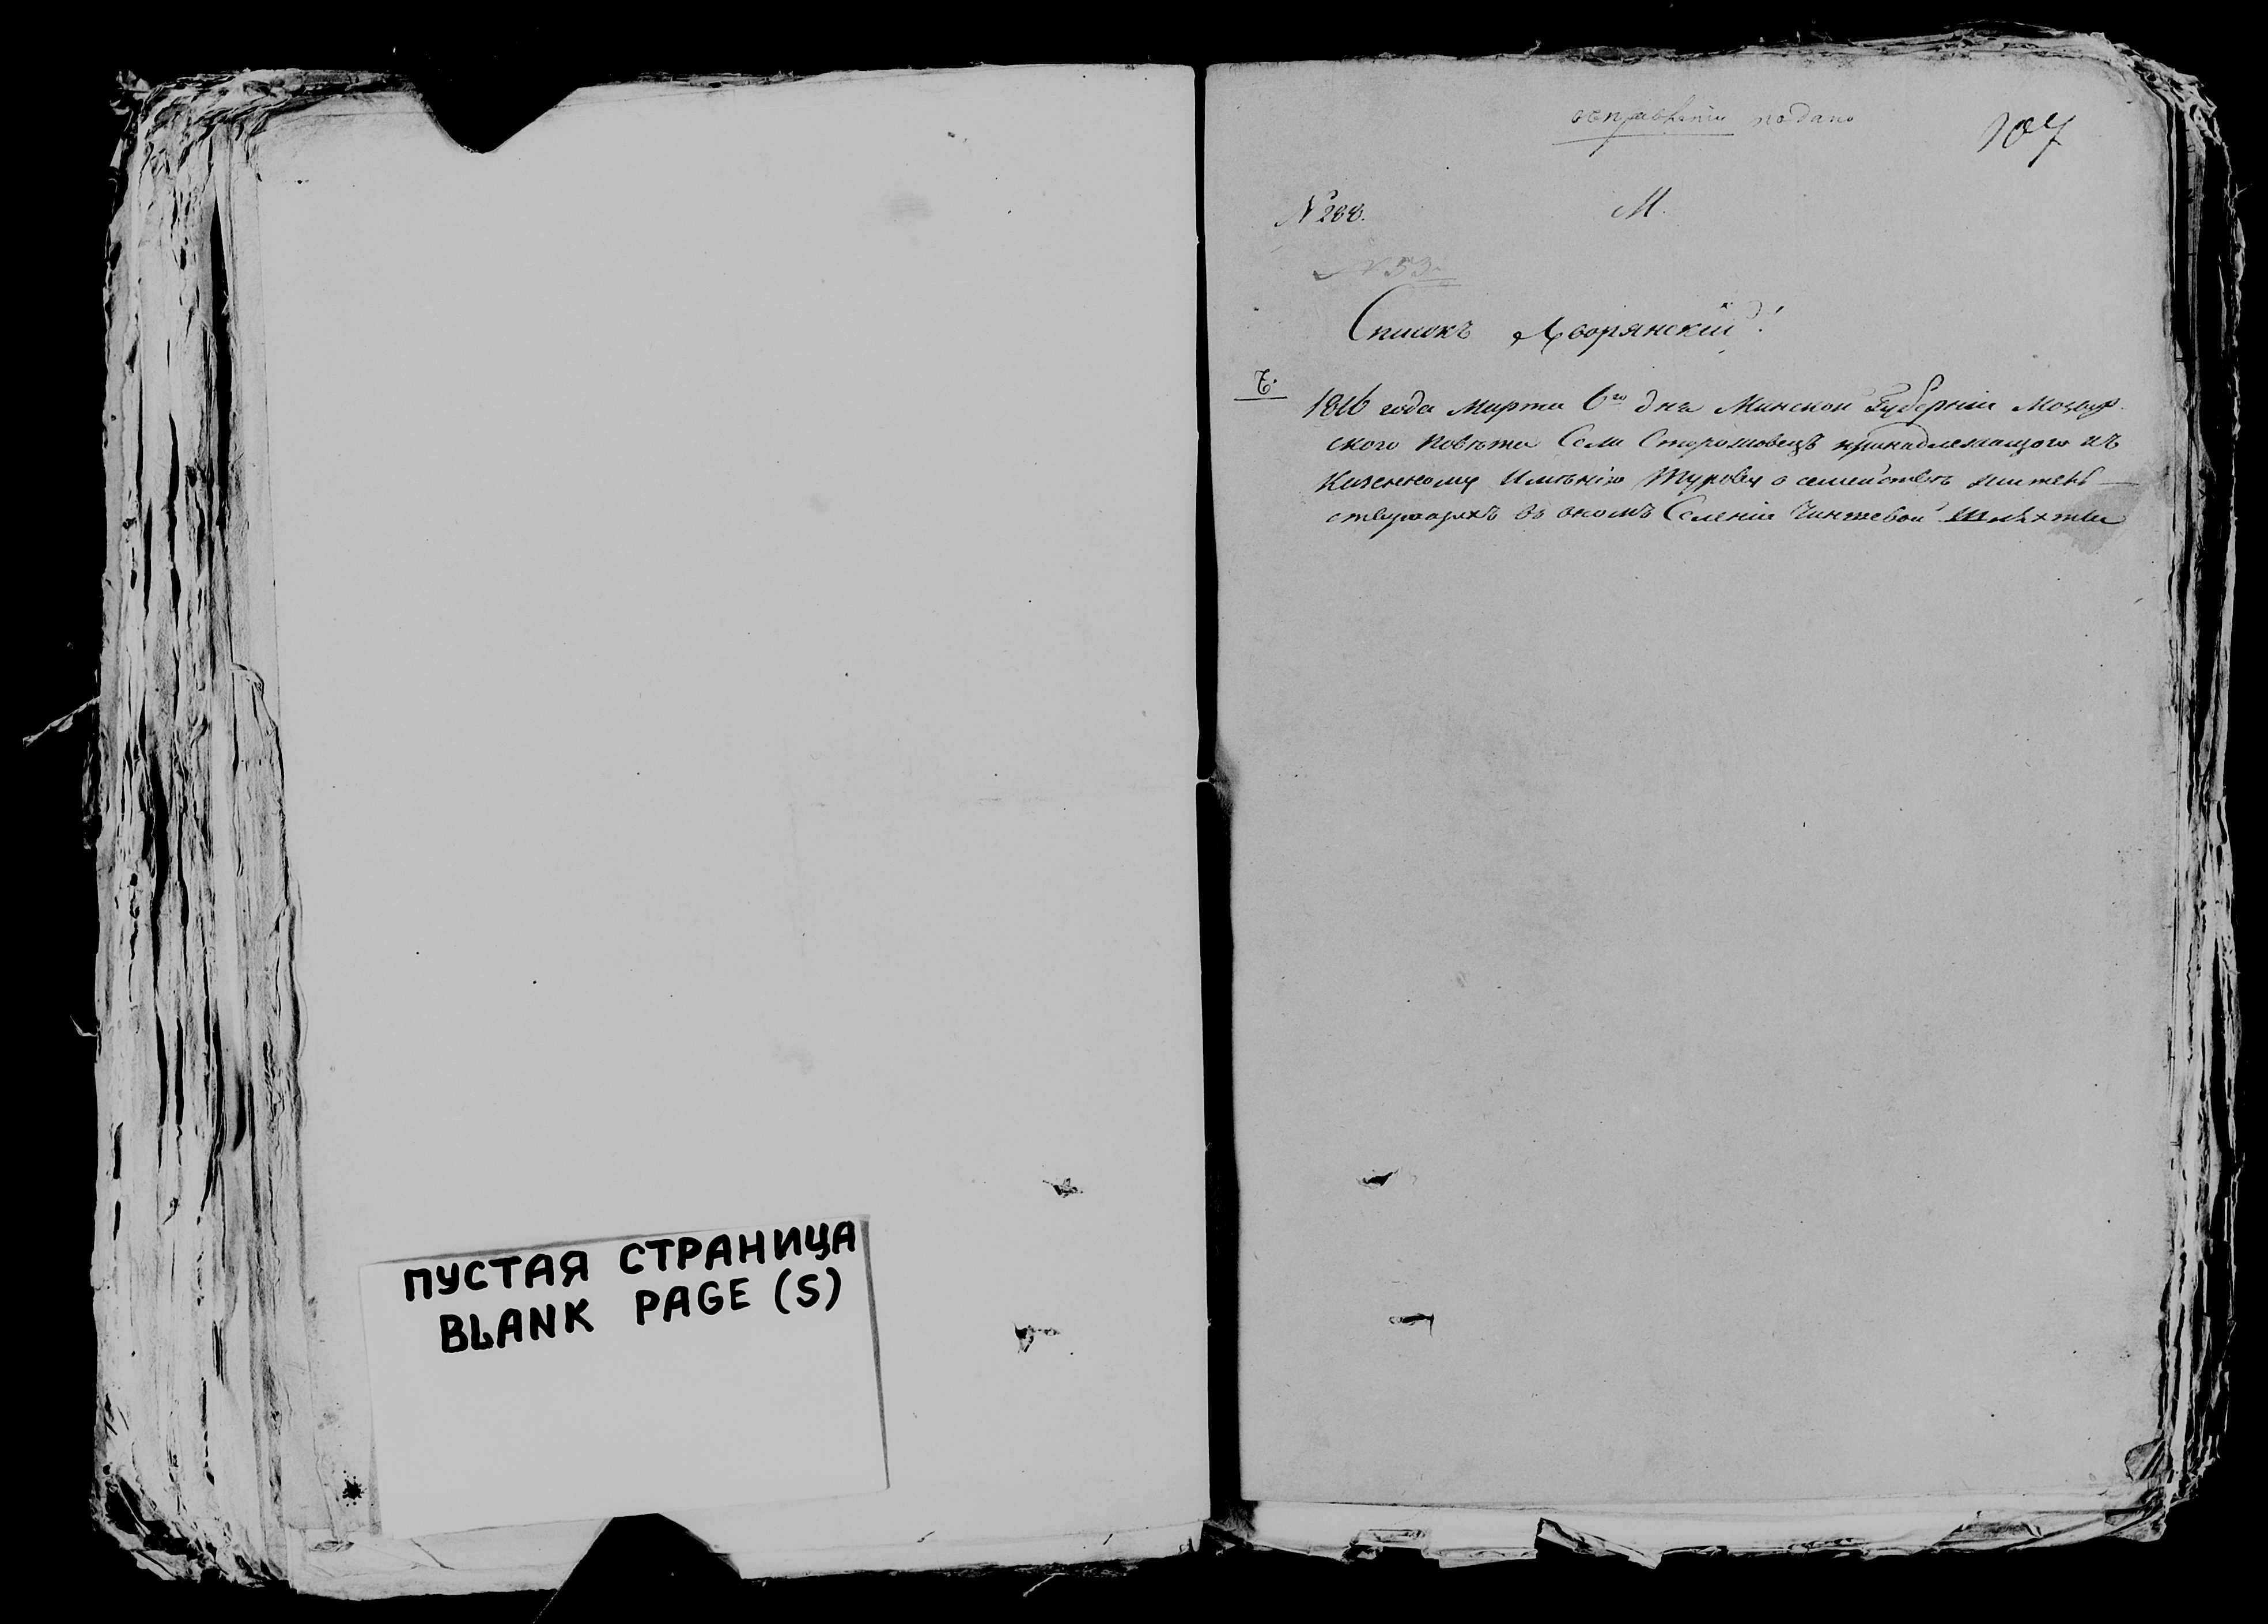 ПУСТАЯ СТРАНИЦА
BLANK PAGE (S)
подано
107
№ 288.
М.
№ 53.
Списокъ Дворянскій!
1816 года Марта 6го дня Минской Губерніи Мозыр
ского Повѣта Села Сторожовецъ принадлежащого къ
Казенному Имѣнію Турову о семействѣ жительствующихъ
въ ономъ Селеніи Чиншевой Шляхты